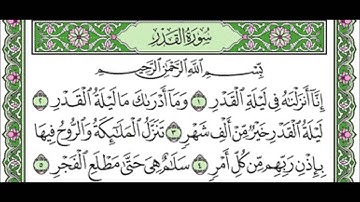 سُورَةُ الْقَدْرِ
بِسْمِ اللَّهِ الرَّحْمَٰنِ الرَّحِيمِ
إِنَّا أَنزَلْنَاهُ فِي لَيْلَةِ الْقَدْرِ ١ وَمَا أَدْرَاكَ مَا لَيْلَةُ الْقَدْرِ ٢
لَيْلَةُ الْقَدْرِ خَيْرٌ مِّنْ أَلْفِ شَهْرٍ ٣ تَنَزَّلُ الْمَلَائِكَةُ وَالرُّوحُ فِيهَا
بِإِذْنِ رَبِّهِم مِّن كُلِّ أَمْرٍ ٤ سَلَامٌ هِيَ حَتَّىٰ مَطْلَعِ الْفَجْرِ ٥